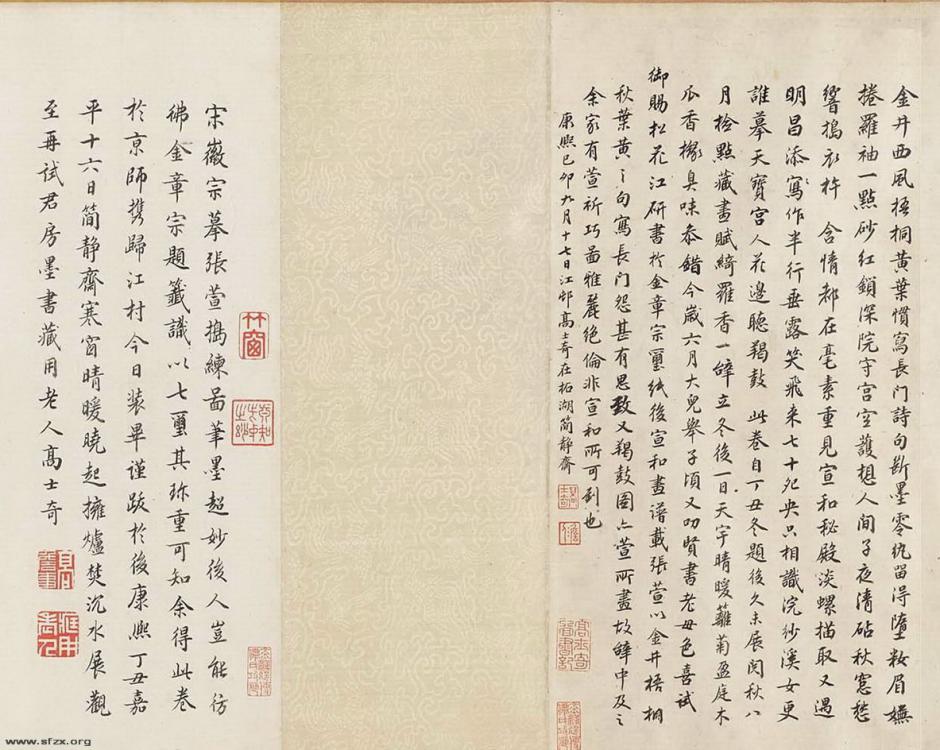 金井西風梧桐黃葉慣寫長門詩句斷墨零紈留得墮粧眉嫵
捲羅袖一點砂紅鎖深院守宮空護想人間子夜清砧秋窓愁
響搗衣杵 含情都在毫素重見宣和秘殿淡螺描取又遇
明昌添寫作半行垂露笑飛来七十夗央只相識浣紗溪女更
誰摹天寶宮人花邊聽羯鼓 此卷自丁丑冬題後久未展閱秋八
月檢點藏畫賦綺羅香一辭立冬後一日天宇晴暖蘺菊盈庭木
瓜香櫞臭味叅錯今歲六月大兒舉子頃又叨賢書老母色喜試
御賜松花江研書於金章宗璽紙後宣和畫譜載張萱以金井梧桐
秋葉黃之句寫長门怨甚有思致又羯鼓圖亦萱所畫故辭中及之
余家有萱祈巧啚雅麗絕倫非宣和所可到也
康熙己卯九月十七日江邨高士奇在柘湖簡靜齋
宋徽宗摹張萱搗練啚筆墨超妙後人豈能彷
彿金章宗題籤識以七璽其珎重可知余得此卷
於京師携歸江村今日裝畢謹跋於後康熙丁丑嘉
平十六日簡靜齋寒窗晴暖曉起擁爐焚沉水展觀
至再試君房墨書藏用老人高士奇
竹窗
www.sfzx.org